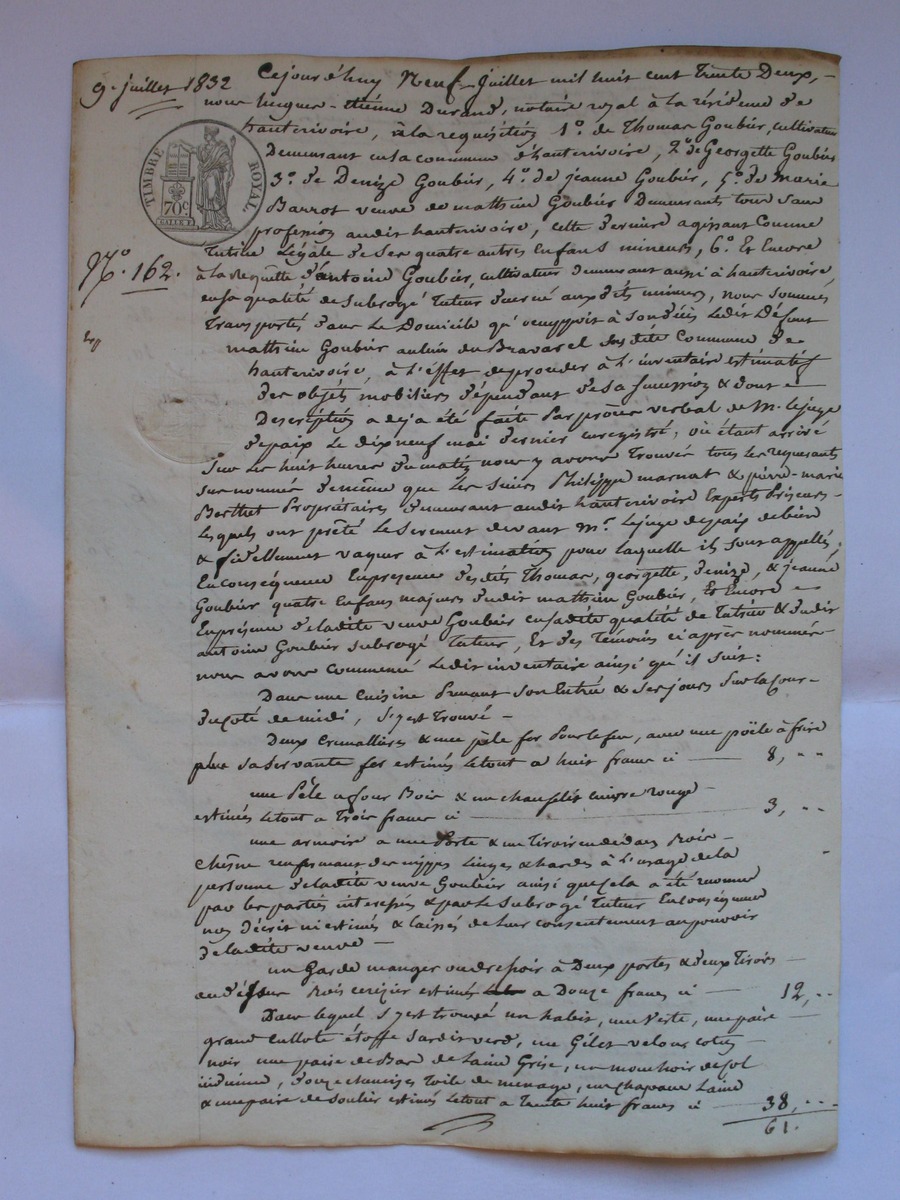 9. juillet 1832
Cejourd'huy Neuf Juillet mil huit cent Trente Deux,
nous Jacques-Etienne Durand, notaire royal à la résidence de
hauterivoire, à la requisition 1º. de Thomas Goubier, cultivateur
Demeurant en la commune d'hauterivoire, 2º de Georgette Goubier
3º. de Denize Goubier, 4º. de jeanne Goubier, 5º. de marie
Barrot veuve de mathieu Goubier Demeurants tous sans
profession audit hauterivoire, cette derniere agissant Comme
Tutrice Légale de ses quatre autres Enfans mineurs, 6º. Et Encore
à la requête d'antoine Goubier, cultivateur demeurant aussi à hauterivoire,
en sa qualité de subrogé Tuteur decerné auxdits mineurs, nous sommes
Transportés dans le Domicile qu'occuppoit à son décès ledit Défunt
mathieu Goubier au lieu du Bravarel susdite Commune de
hauterivoire, à l'éffet de proceder à l'inventaire estimatif
Des objets mobiliers dépendant de sa succession & dont
Description a déja été faite par procès verbal de M. le juge
de paix le dix neuf mai dernier enregistré, où étant arrivé
sur les huit heures du matin nous y avons trouvés tous les requerants
sus nommés de même que les sieurs Philippe marnat & pierre-marie
Berthet Propriétaires demeurant audit hauterivoire Experts Priseurs
lesquels ont prêté le serment devant Mr. le juge de paix de bien
& fidellement vaquer à l'estimation pour laquelle ils sont appellés;
En conséquence En presence desdits Thomas, georgette, denize, & jeanne
Goubier quatre Enfans majeurs dudit mathieu Goubier, Et Encore
En présence de ladite veuve Goubier en sadite qualité de Tutrice & dudit
antoine Goubier subrogé Tuteur, Et des Témoins ci après nommés
nous avons commencé ledit inventaire ainsi qu'il suit:
Dans une Cuisine Prenant son Entrée & ses jours sur la cour
du coté de midi, s'y est Trouvé
Deux Cremallieres & une pèle fer pour le feu, avec une poële à frire
plus sa servante fer estimés le tout a huit francs ci 8, "
une Pèle a four Bois & un chauffelit cuivre rouge
estimés le tout a Trois francs ci 3, "
une armoir a une Porte & un Tiroir en dedans Bois
Chêne renfermant des nippes linges & hardes à l'usage de la
personne de ladite veuve Goubier ainsi que cela a été reconnu
par les parties interessées & par le subrogé Tuteur En conséquence
non décrit ni estimés & laissés de leur consentement au pouvoir
de ladite veuve
un Garde manger ou dressoir à Deux portes & deux Tiroirs
au dessus Bois cerizier estimés a Douze francs ci 12, "
Dans lequel s'y est trouvé un habit, une veste, une paire
grand cullote étoffe sardis verd, un Gilet velour coton
noir une paire de Bas de laine Grise, un mouchoir de col
indienne, douze chemises Toile de menage, un chapeau Laine
& une paire de soulier estimés le tout a Trente huit francs ci 38, "
61.
TIMBRE ROYAL
70 C.
Nº. 162.